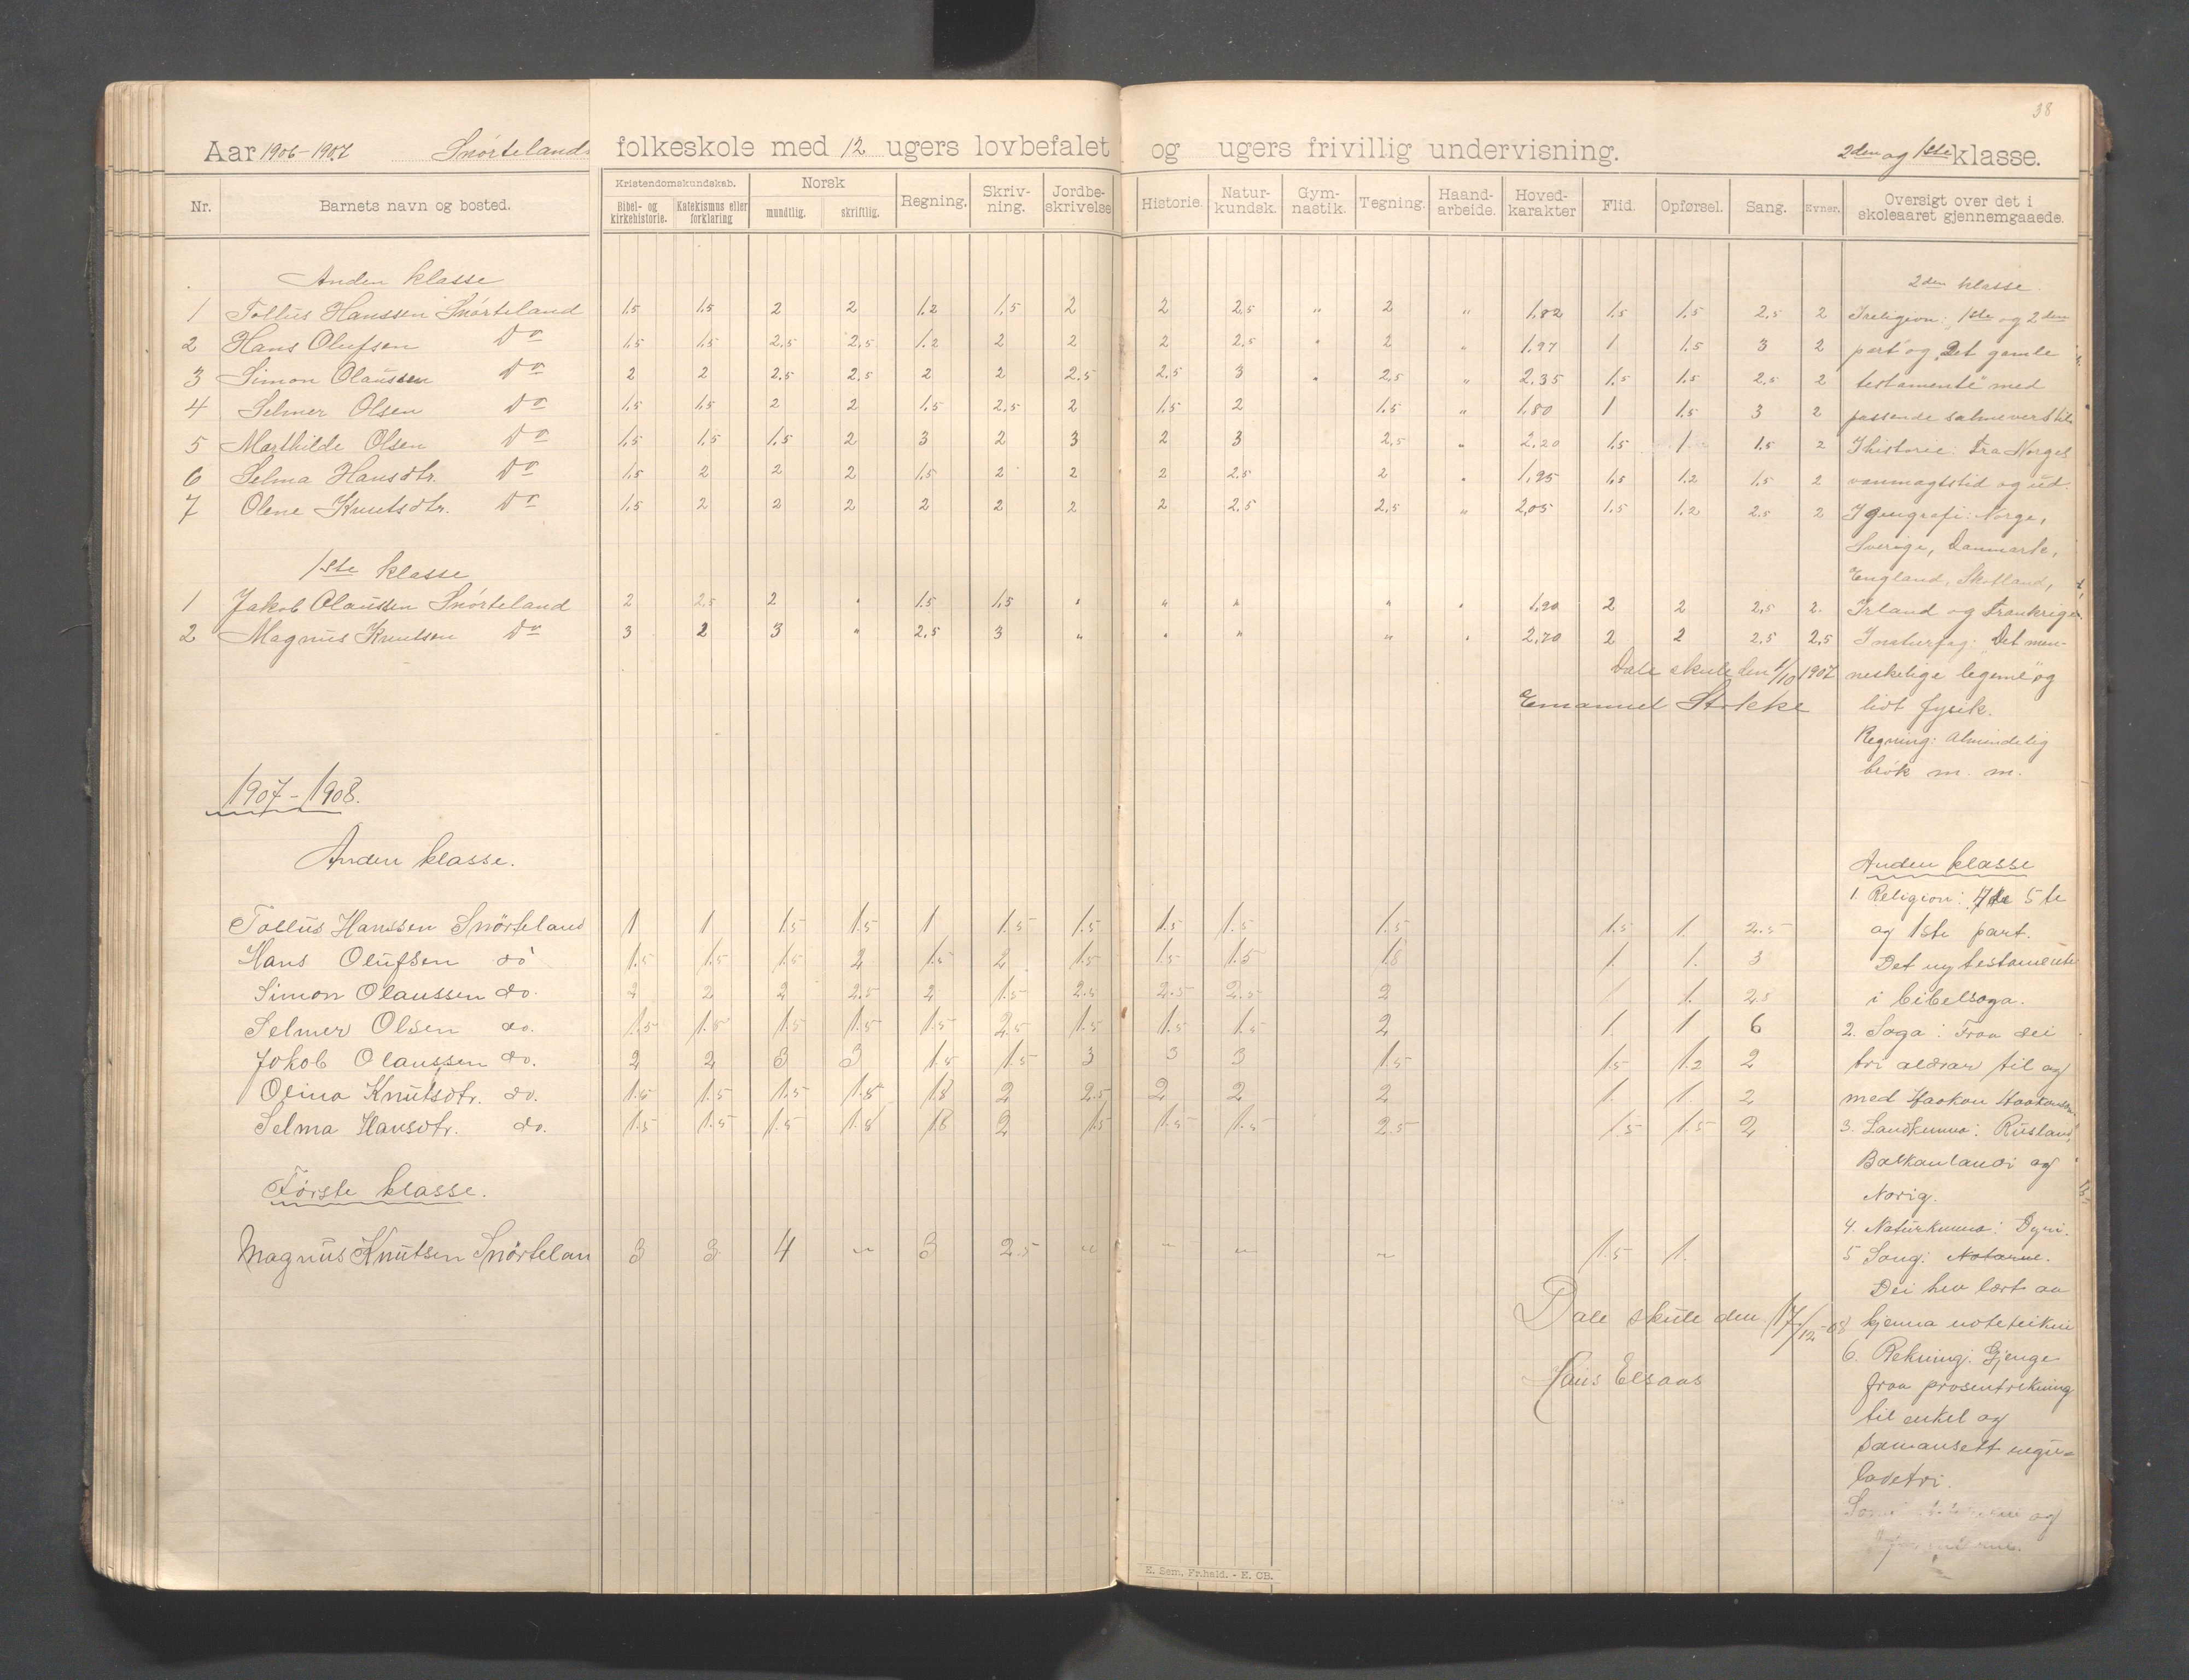 38
Aar 1906-1907 Snørtelands folkeskole med 12 ugers lovbefalet og ugers frivillig undervisning. 2den og 1ste klasse.
Nr. Barnets navn og bosted. Kristendomskundskab. Bibel- og kirkehistorie. Katekismus eller forklaring Norsk mundtlig. skriftlig. Regning. Skriv-ning. Jordbe-skrivelse Historie. Natur-kundsk. Gym-nastik. Tegning. Haand-arbeide. Hoved-karakter Flid. Opførsel. Sang. Evner. Oversigt over det i skoleaaret gjennemgaaede.
Anden klasse 2den klasse.
1 Tollus Hanssen Snørteland 1.5 1.5 2 2 1.2 1.5 2 2 2.5 " 2 " 1.82 1.5 1.5 2.5 2 I religion: 1ste og 2den
2 Hans Olufsen Do 1.5 1.5 2.5 2.5 1.2 2 2 2 2.5 " 2 " 1.97 1 1.5 3 2 part og "Det gamle
3 Simon Olaussen Do 2 2 2.5 2.5 2 2 2.5 2.5 3 " 2.5 " 2.35 1.5 1.5 2.5 2 testamente" med
4 Selmer Olsen Do 1.5 1.5 2 2 1.5 2.5 2 1.5 2 1.5 " 1.80 1 1.5 3 2 passende salmevers til.
5 Marthilde Olsen Do 1.5 1.5 1.5 2 3 2 3 2 3 2.5 " 2.20 1.5 1 1.5 2 I historie: Fra Norges
6 Selma Hansdtr. Do 1.5 2 2 2 1.5 2 2 2 2.5 2 " 1.95 1.5 1.2 1.5 2 vanmagtstid og ud.
7 Olene Knutsdtr. Do 1.5 2 2 2 2 2 2 2 2.5 2.5 " 2.05 1.5 1.2 2.5 2 I geografi: Norge,
Sverige, Danmark,
1ste klasse England, Skotland,
1 Jakob Olaussen Snørteland 2 2.5 2 " 1.5 1.5 " " " " " 1.90 2 2 2.5 2 Irland og Frankrige.
2 Magnus Knutsen Do 3 2 3 " 2.5 3 " " " " " 2.70 2 2 2.5 2.5 I naturfag: "Det men-
Dale skule den 1/10 1907 neskelige legeme" og
Emanuel Stokke lidt fysik.
Regning: Almindelig
brøk m. m.
1907-1908.
Anden klasse. Anden klasse
1. Religion: 5te
Tollus Hanssen Snörteland 1 1 1.5 1.5 1 1.5 1.5 1.5 1.5 1.5 1.5 1. 2.5 og 1ste part.
Hans Olufsen do 1.5 1.5 1.5 2 1.5 2 1.5 1.5 1.5 1.8 1 1. 3 Det ny testamente
Simon Olaussen do. 2 2 2 2.5 2 1.5 2.5 2.5 2.5 2 1 1. 2.5 i bibelsoga.
Selmer Olsen do. 1.5 1.5 1.5 1.5 1.5 2.5 1.5 1.5 1.5 2 1. 1 6 2. Soga: Fraa dei
Jakob Olaussen do. 2 2 3 3 1.5 1.5 3 3 3 1.5 1.5 1.2 2 tri aldrar til og
Olina Knutsdtr. do. 1.5 1.5 1.5 1.8 1.8 2 2.5 2 2 2 1. 1. 2 med Haakon Haakonson
Selma Hansdtr. do. 1.5 1.5 1.5 1.8 1.8 2 1.5 1.5 1.5 2.5 1.5 1.5 2 3. Landkunna: Rusland,
Balkanlandi og
Förste klasse. Norig.
4. Naturkunna: Dyri.
Magnus Knutsen Snörtelan 3 3 4 " 3 2.5 " " " " 1.5 1. 5 Song: Notarne.
Dei hev lært aa
Dale skule den 17/12-08 kjenna noteteikni
6. Rekning: Gjenge
Hans Elsaas fraa prosentrekning
til enkel og
samansett regu-
ladetri.
og